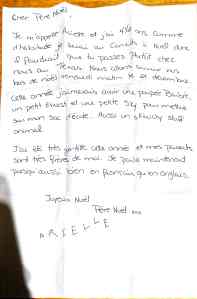 Cher Père Noël,
Je m'appelle Arielle et j'ai 4 ans. Comme
d'habitude je serai au Canada à Noël donc
il faudrait que tu passes plutôt chez
nous au Texas. Nous allons ouvrir nos
bas de noël vendredi matin le décembre.
Cette année j'aimerais avoir une poupée Barbie,
un petit Everest et une petite Sky pour mettre
sur mon sac d'école. Aussi un stuff
animal.
J'ai été très gentille cette année et mes parents
sont très fières de moi. Je parle maintenant
presque aussi bien en français qu'en anglais.
Joyeux Noël
Père Noël
ARIELLE